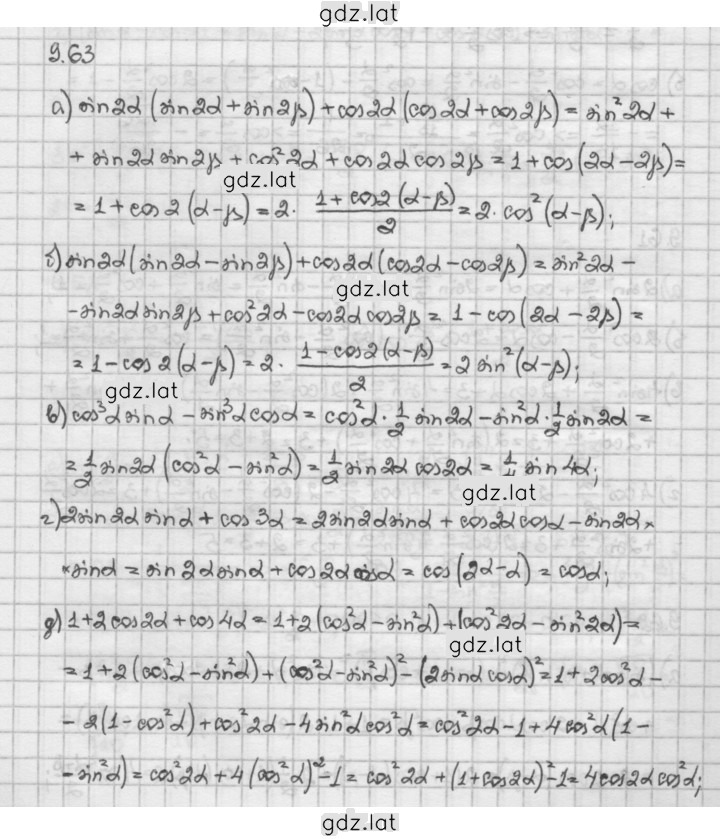 gdz.lat
9.63
а) sin2α (sin2α + sin2β) + cos2α (cos2α + cos2β) = sin²2α +
+ sin2α sin2β + cos²2α + cos2α cos2β = 1 + cos(2α − 2β) =
gdz.lat
= 1 + cos 2(α − β) = 2 · (1 + cos2(α − β))/2 = 2 · cos²(α − β);
б) sin2α (sin2α − sin2β) + cos2α (cos2α − cos2β) = sin²2α −
gdz.lat
− sin2α sin2β + cos²2α − cos2α cos2β = 1 − cos(2α − 2β) =
= 1 − cos 2(α − β) = 2 · (1 − cos2(α − β))/2 = 2 sin²(α − β);
gdz.lat
в) cos³α sinα − sin³α cosα = cos²α · 1/2 sin2α − sin²α · 1/2 sin2α =
= 1/2 sin2α (cos²α − sin²α) = 1/2 sin2α cos2α = 1/4 sin4α;
gdz.lat
г) 2sin2α sinα + cos3α = 2sin2α sinα + cos2α cosα − sin2α ×
× sinα = sin2α sinα + cos2α cosα = cos(2α − α) = cosα;
д) 1 + 2cos2α + cos4α = 1 + 2(cos²α − sin²α) + (cos²2α − sin²2α) =
gdz.lat
= 1 + 2(cos²α − sin²α) + (cos²α − sin²α)² − (2sinα cosα)² = 1 + 2cos²α −
− 2(1 − cos²α) + cos²2α − 4sin²α cos²α = cos²2α − 1 + 4cos²α (1 −
− sin²α) = cos²2α + 4(cos²α)² − 1 = cos²2α + (1 + cos2α)² − 1 = 4cos2α cos²α;
gdz.lat